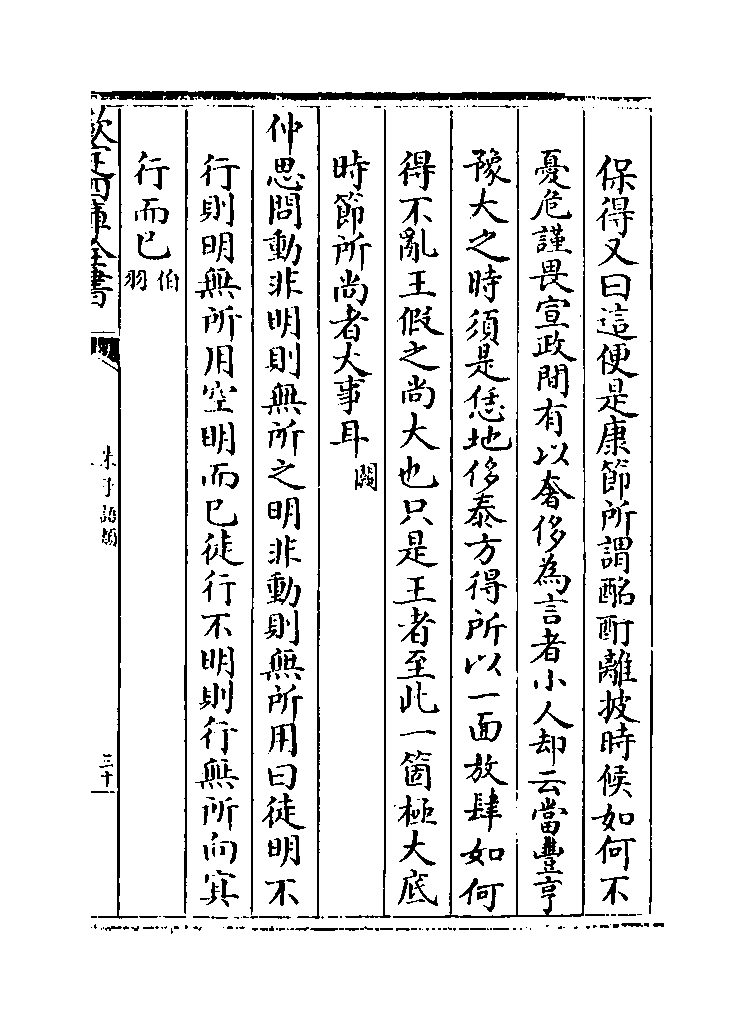 保得又曰這便是康節所謂酩酊離披時候如何不
憂危謹畏宣政間有以奢侈為言者小人却云當豐亨
豫大之時須是恁地侈泰方得所以一面放肆如何
得不亂王假之尚大也只是王者至此一箇極大底
時節所尚者大事耳闕
仲思問動非明則無所之明非動則無所用曰徒明不
行則明無所用空明而已徒行不明則行無所向冥
行而已伯羽
欽定四庫全書
朱子語類
三十